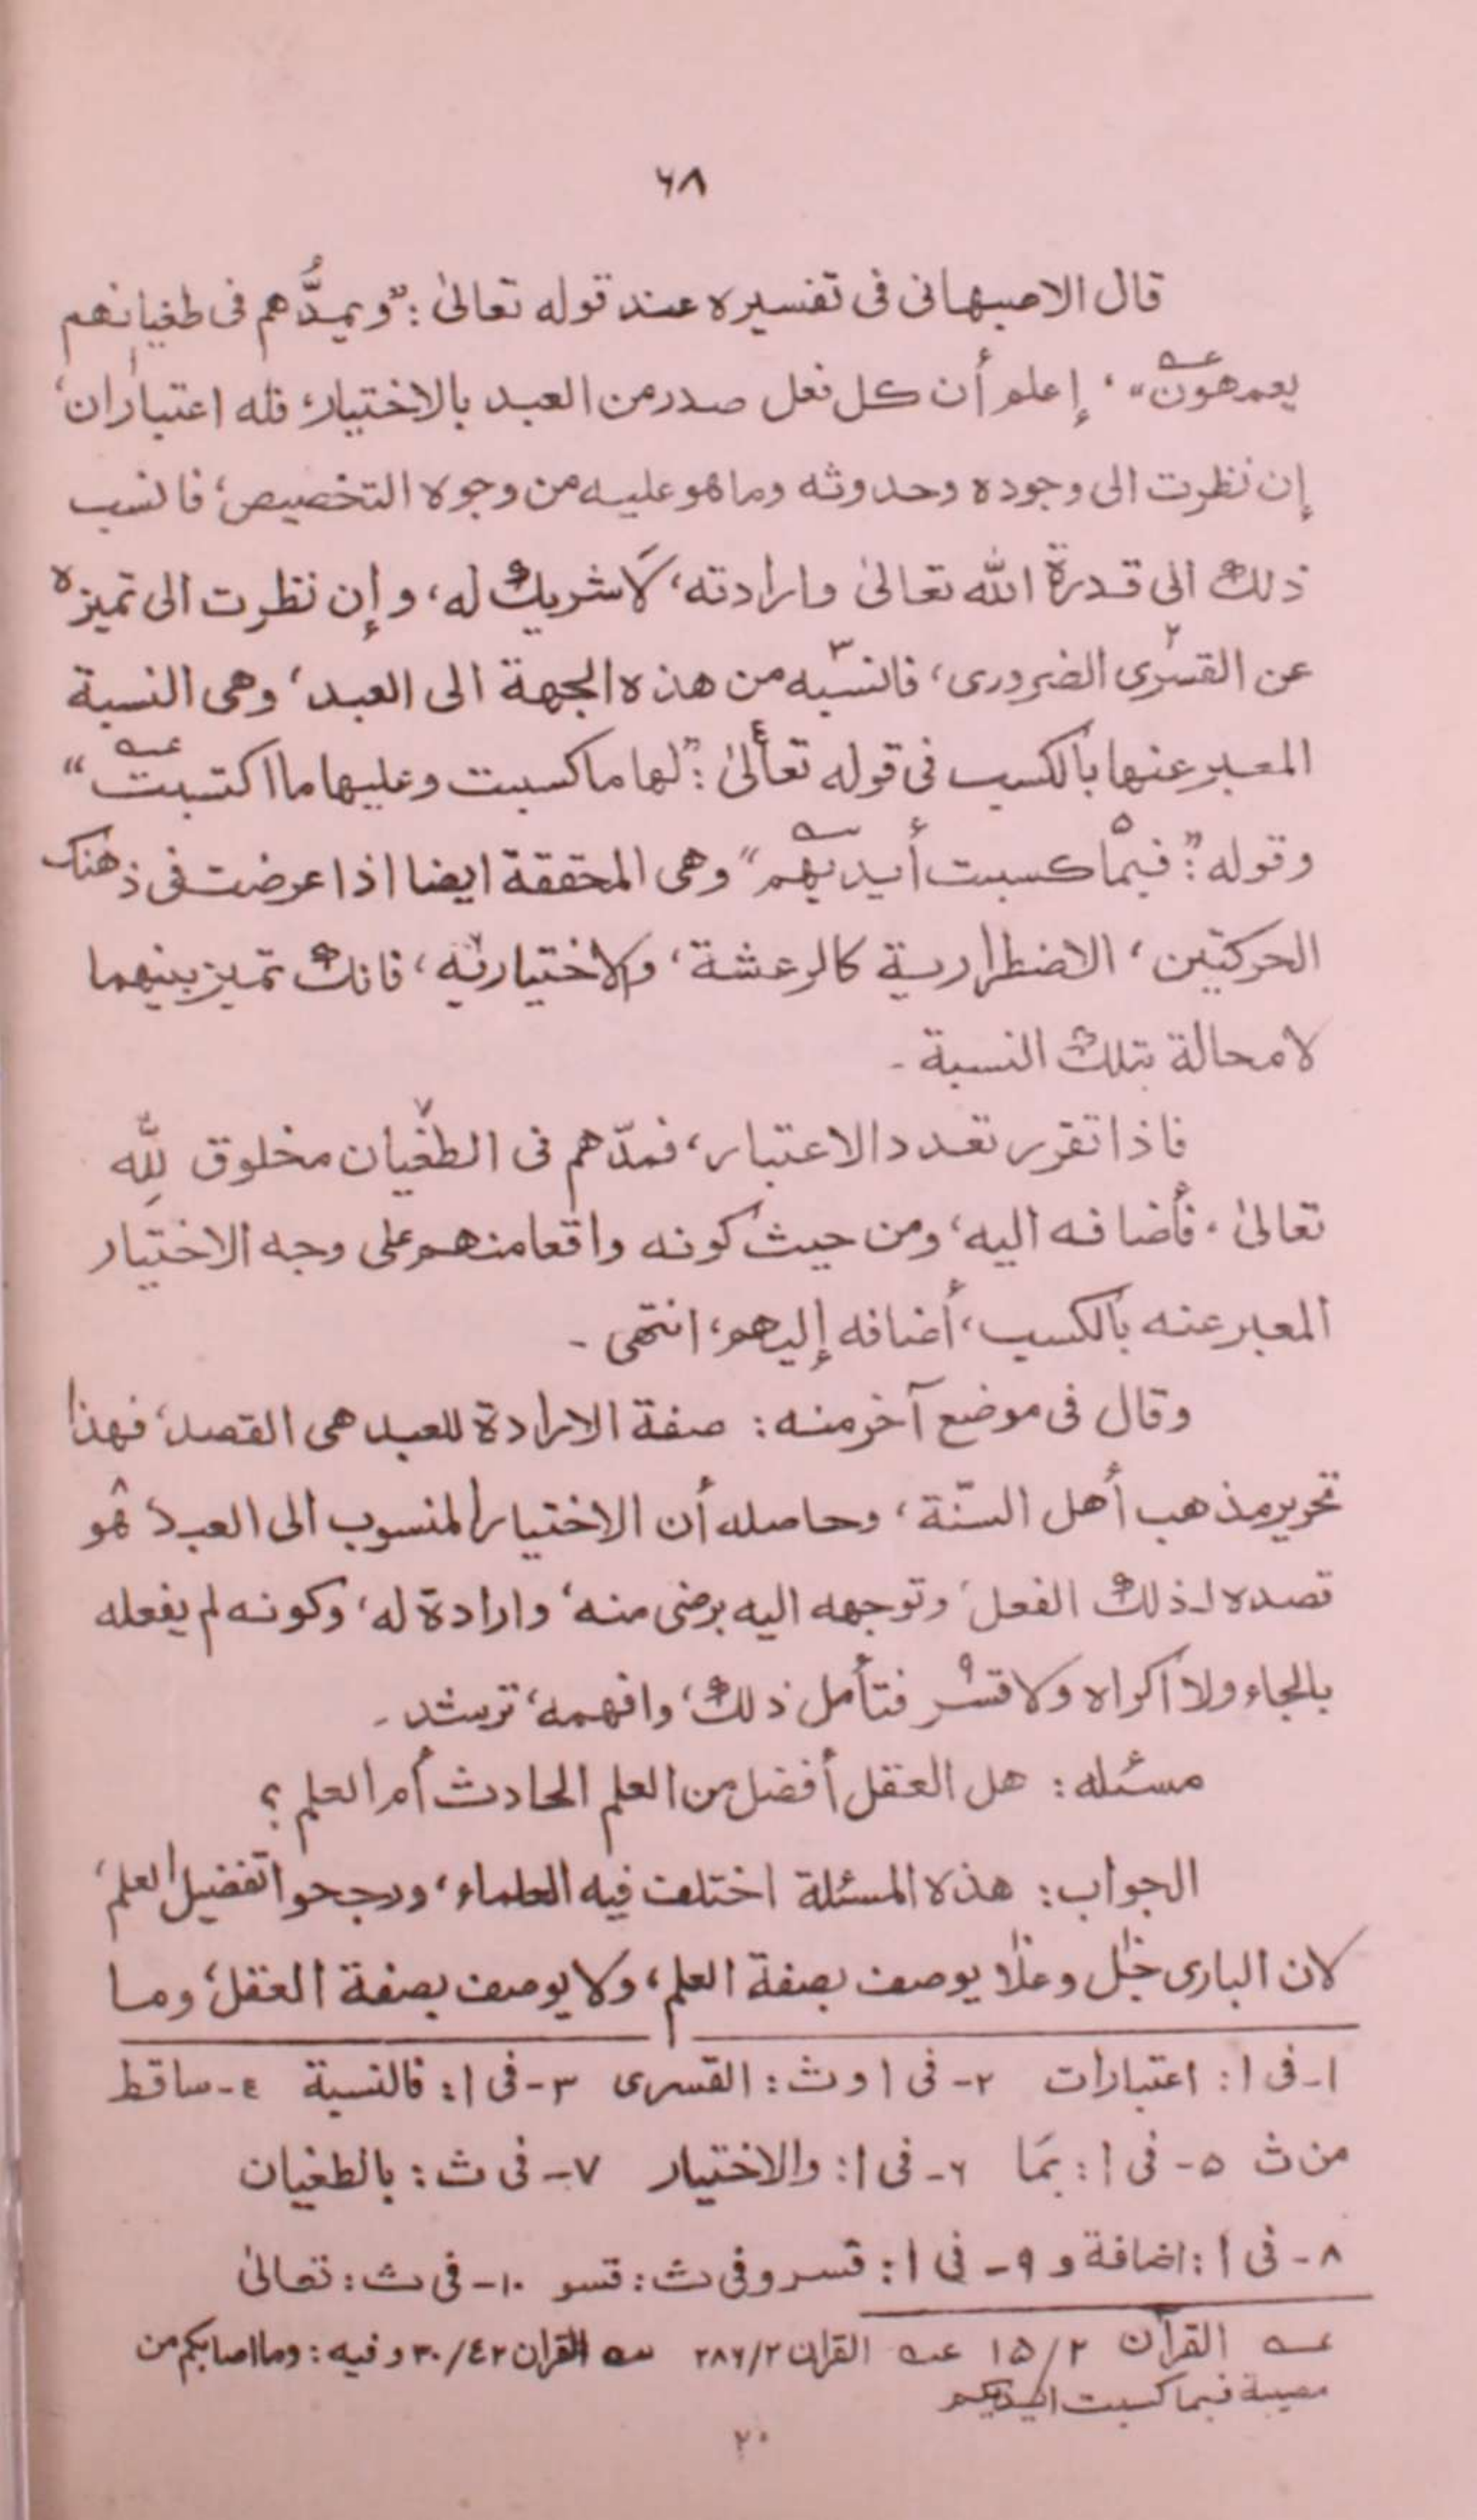 ٦٨
قال الاصبهانى فى تفسيره عند قوله تعالىٰ: "ويمدُّهم فى طغيانهم
يعمهون"، إعلم أن كل فعل صدر من العبد بالاختيار، فله اعتباران١،
إن نظرت الى وجوده وحدوثه وما هو عليه من وجوه التخصيص، فانسب
ذلك الى قدرة الله تعالىٰ وارادته، لَا شريك له، وإن نظرت الى تميزه
عن القسرى٢ الضرورى، فانسبه٣ من هذه الجهة الى العبد، وهى النسبة
المعبر عنها بالكسب فى قوله تعالىٰ٤: "لها ما كسبت وعليها ما اكتسبت"
وقوله: "فبما٥ كسبت أيديهم" وهى المحققة ايضا اذا عرضت فى ذهنك
الحركتين، الاضطرارية كالرعشة، والاختيارية٦، فانك تميز بينهما
لا محالة بتلك النسبة -
فاذا تقرر تعدد الاعتبار، فمدّهم فى الطغيان٧ مخلوق لِلّٰه
تعالىٰ، فأضافه اليه، ومن حيث كونه واقعا منهم على وجه الاختيار
المعبر عنه بالكسب، أضافه إليهم، انتهى -
وقال فى موضع آخر منه: صفة الارادة للعبد هى القصد، فهذا
تحرير مذهب أهل السنّة، وحاصله أن الاختيار المنسوب الى العبد، هو٨
قصده لذلك الفعل، وتوجهه اليه برضى منه، وارادة له، وكونه لم يفعله
بالجاء ولا اكراه ولا قسر٩ فتأمل ذلك، وافهمه، ترشد -
مسئله: هل العقل أفضل من العلم الحادث أم العلم؟
الجواب: هذه المسئلة اختلف فيه العلماء، ورجحوا تفضيل العلم،
لان البارى جل وعلا١٠ يوصف بصفة العلم، ولا يوصف بصفة العقل، وما
١- فى ا: اعتبارات ٢- فى ا وث: القسرى ٣- فى ا: فالنسبة ٤- ساقط
من ث ٥- فى ا: بمَا ٦- فى ا: والاختيار ٧- فى ث: بالطغيان
٨- فى ا: اضافة و ٩- فى ا: قسر وفى ث: قسو ١٠- فى ث: تعالىٰ
عه القرآن ٢/١٥ عه القران ٢/٢٨٦ سه القران ٤٢/٣٠ وفيه: وما اصابكم من
مصيبة فبما كسبت ايديكم
٢٠